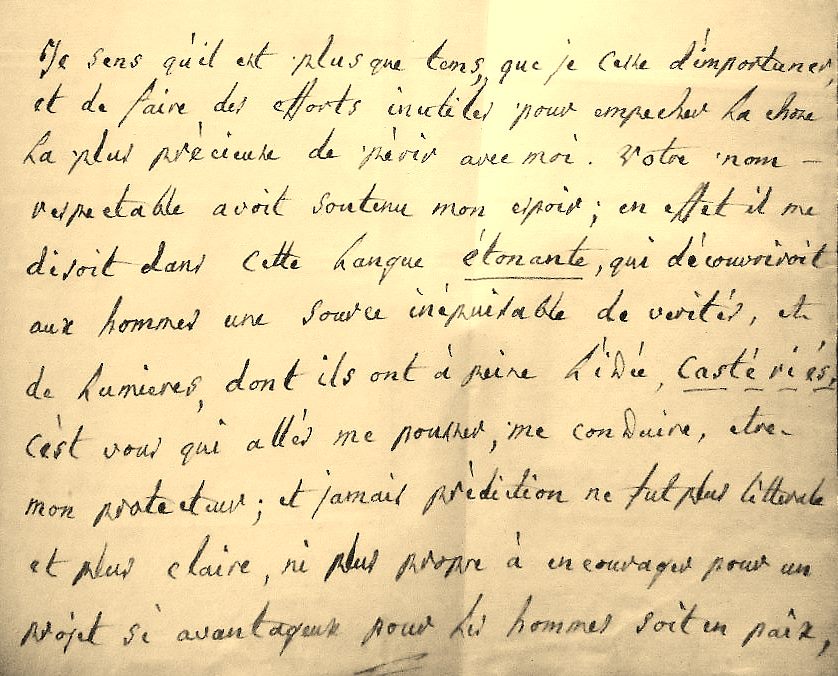 Je sens qu'il est plus que tems, que je cesse d'importuner,
et de faire des efforts inutiles pour empecher la chose
la plus précieuse de périr avec moi. Votre nom -
respectable avoit soutenu mon espoir; en effet il me
disoit dans cette langue étonante, qui découvriroit
aux hommes une source inépuisable de verités, et
de lumieres, dont ils ont à peine l'idée, Castériés,
c'est vous qui allés me pousser, me conduire, etre
mon protecteur; et jamais prédiction ne fut plus litterale
et plus claire, ni plus propre à encourager pour un
projet si avantageux pour les hommes soit en paix,